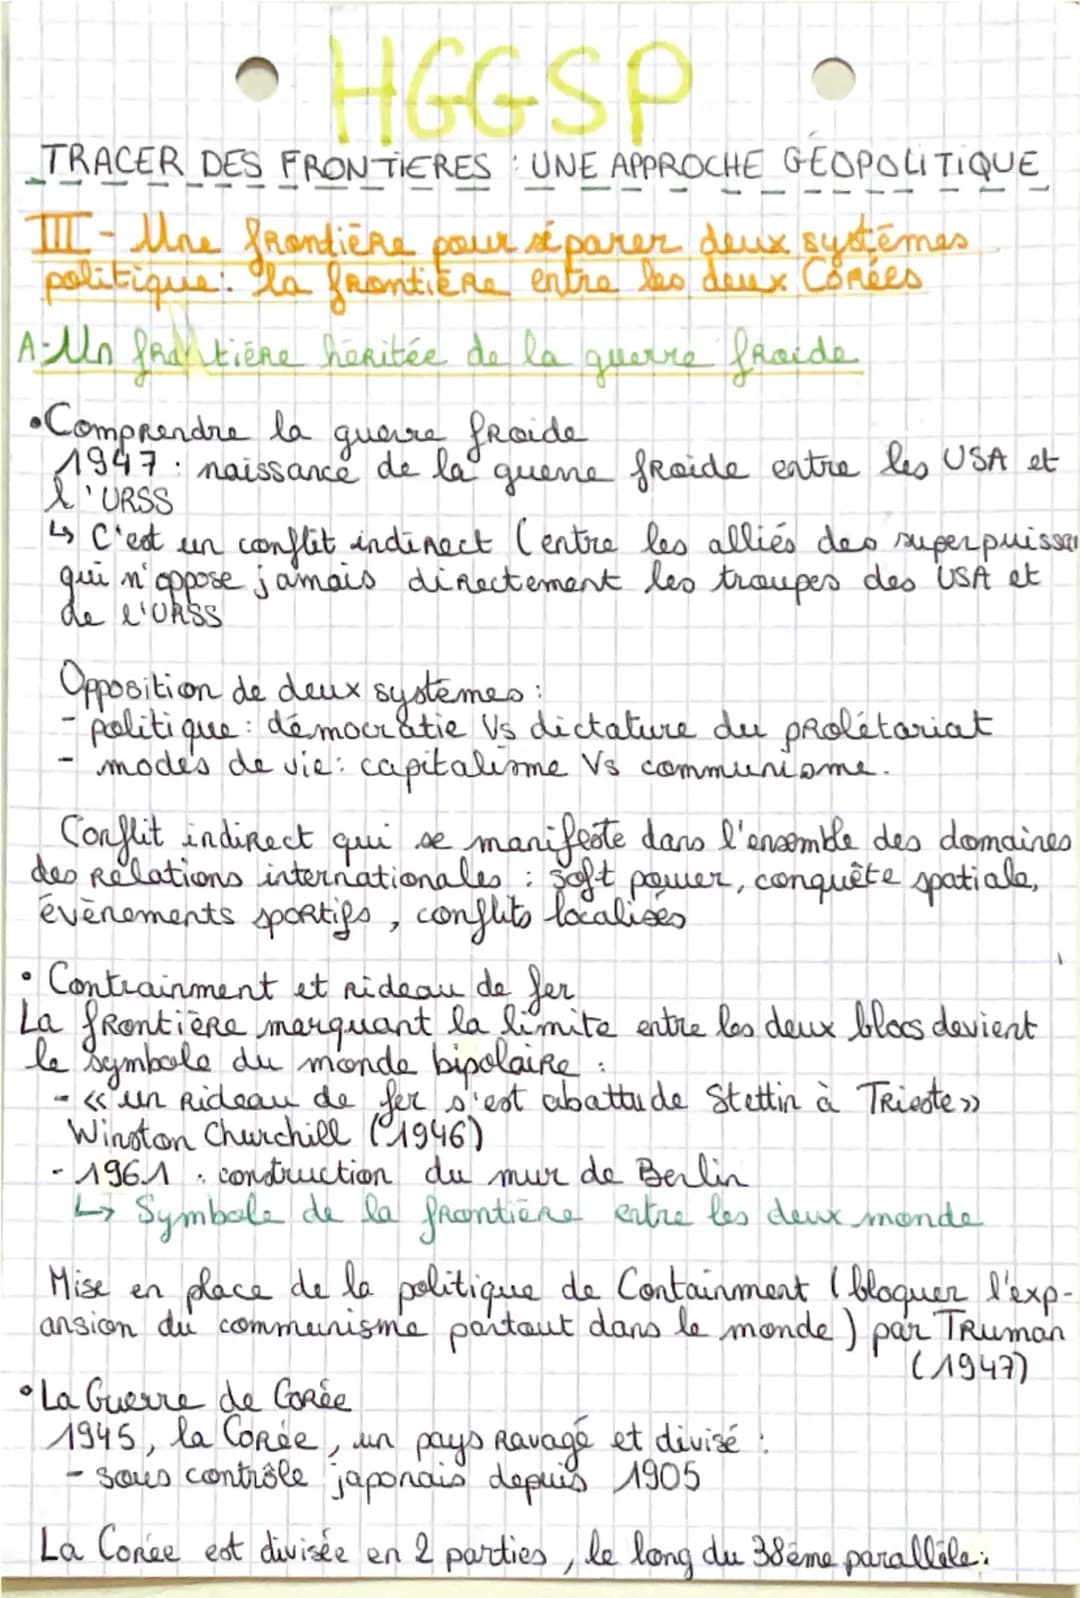 HGGSP
TRACER DES FRONTIERES : UNE APPROCHE GÉOPOLITIQUE
III - Une frontière pour séparer deux systèmes
politique : la frontière entre les deux Corées
A - Un frontière héritée de la guerre froide
• Comprendre la guerre froide
1947 : naissance de la guerre froide entre les USA et
l'URSS
↳ C'est un conflit indirect (entre les alliés des superpuissa
qui n'oppose jamais directement les troupes des USA et
de l'URSS
Opposition de deux systèmes :
- politique : démocratie Vs dictature du prolétariat
- modes de vie : capitalisme Vs communisme.
Conflit indirect qui se manifeste dans l'ensemble des domaines
des relations internationales : soft power, conquête spatiale,
évènements sportifs, conflits localisés
• Contrainment et rideau de fer
La frontière marquant la limite entre les deux blocs devient
le symbole du monde bipolaire :
- « un rideau de fer s'est abattu de Stettin à Trieste »
Winston Churchill (1946)
- 1961 : construction du mur de Berlin
↳ Symbole de la frontière entre les deux monde
Mise en place de la politique de Containment (bloquer l'exp-
ansion du communisme partout dans le monde) par Truman
(1947)
• La Guerre de Corée
1945, la Corée, un pays ravagé et divisé :
- sous contrôle japonais depuis 1905
La Corée est divisée en 2 parties, le long du 38ème parallèle :